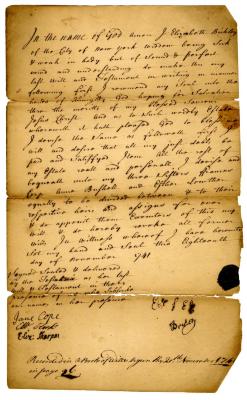 In the name of God Amen I Elizabeth
of the City of New york widow being Sick
& weak in body but of Sound & perfect
mind and understanding do make this my
last Will and Testament in writing in manner
following first I recommend my Soul into the
hands of Almighty God hoping for Salvation
thro the merits of my blessed Saviour
Jesus Christ and as to Such worldly Estate
wherewith it hath pleased God to bless me
I devise the Same as followeth first I
will and desire that all my just debts be
paid and Satisfyed Item all the rest of
my Estate real and personall I devise and
bequeath unto my three Sisters
Anne and
equally to be divided between to their
respective heirs and assigns for ever
& do appoint them Executors of this my
will & do hereby revoke all former
wills In witness whereof I have hereunto
Set my hand and Seal this Eighteenth
day of November 1741
Signed Sealed & delivered
by the as her last
will & Testament in the
presence of us who Subscribe
our names in her presence
Jane Cope
Eliz: Sharpas
Recorded in Book of Wills begun the November
in page